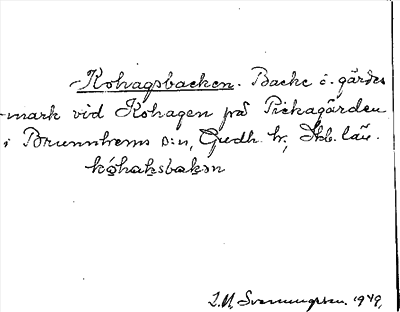 -Kohagsbacken. Backe i gärdes
-mark vid Kohagen på Pickagården
i Brunnhems s:n, Gudh. hr, Skb. län.
kóhaksbakən
L.M. Svenungsson. 1949.